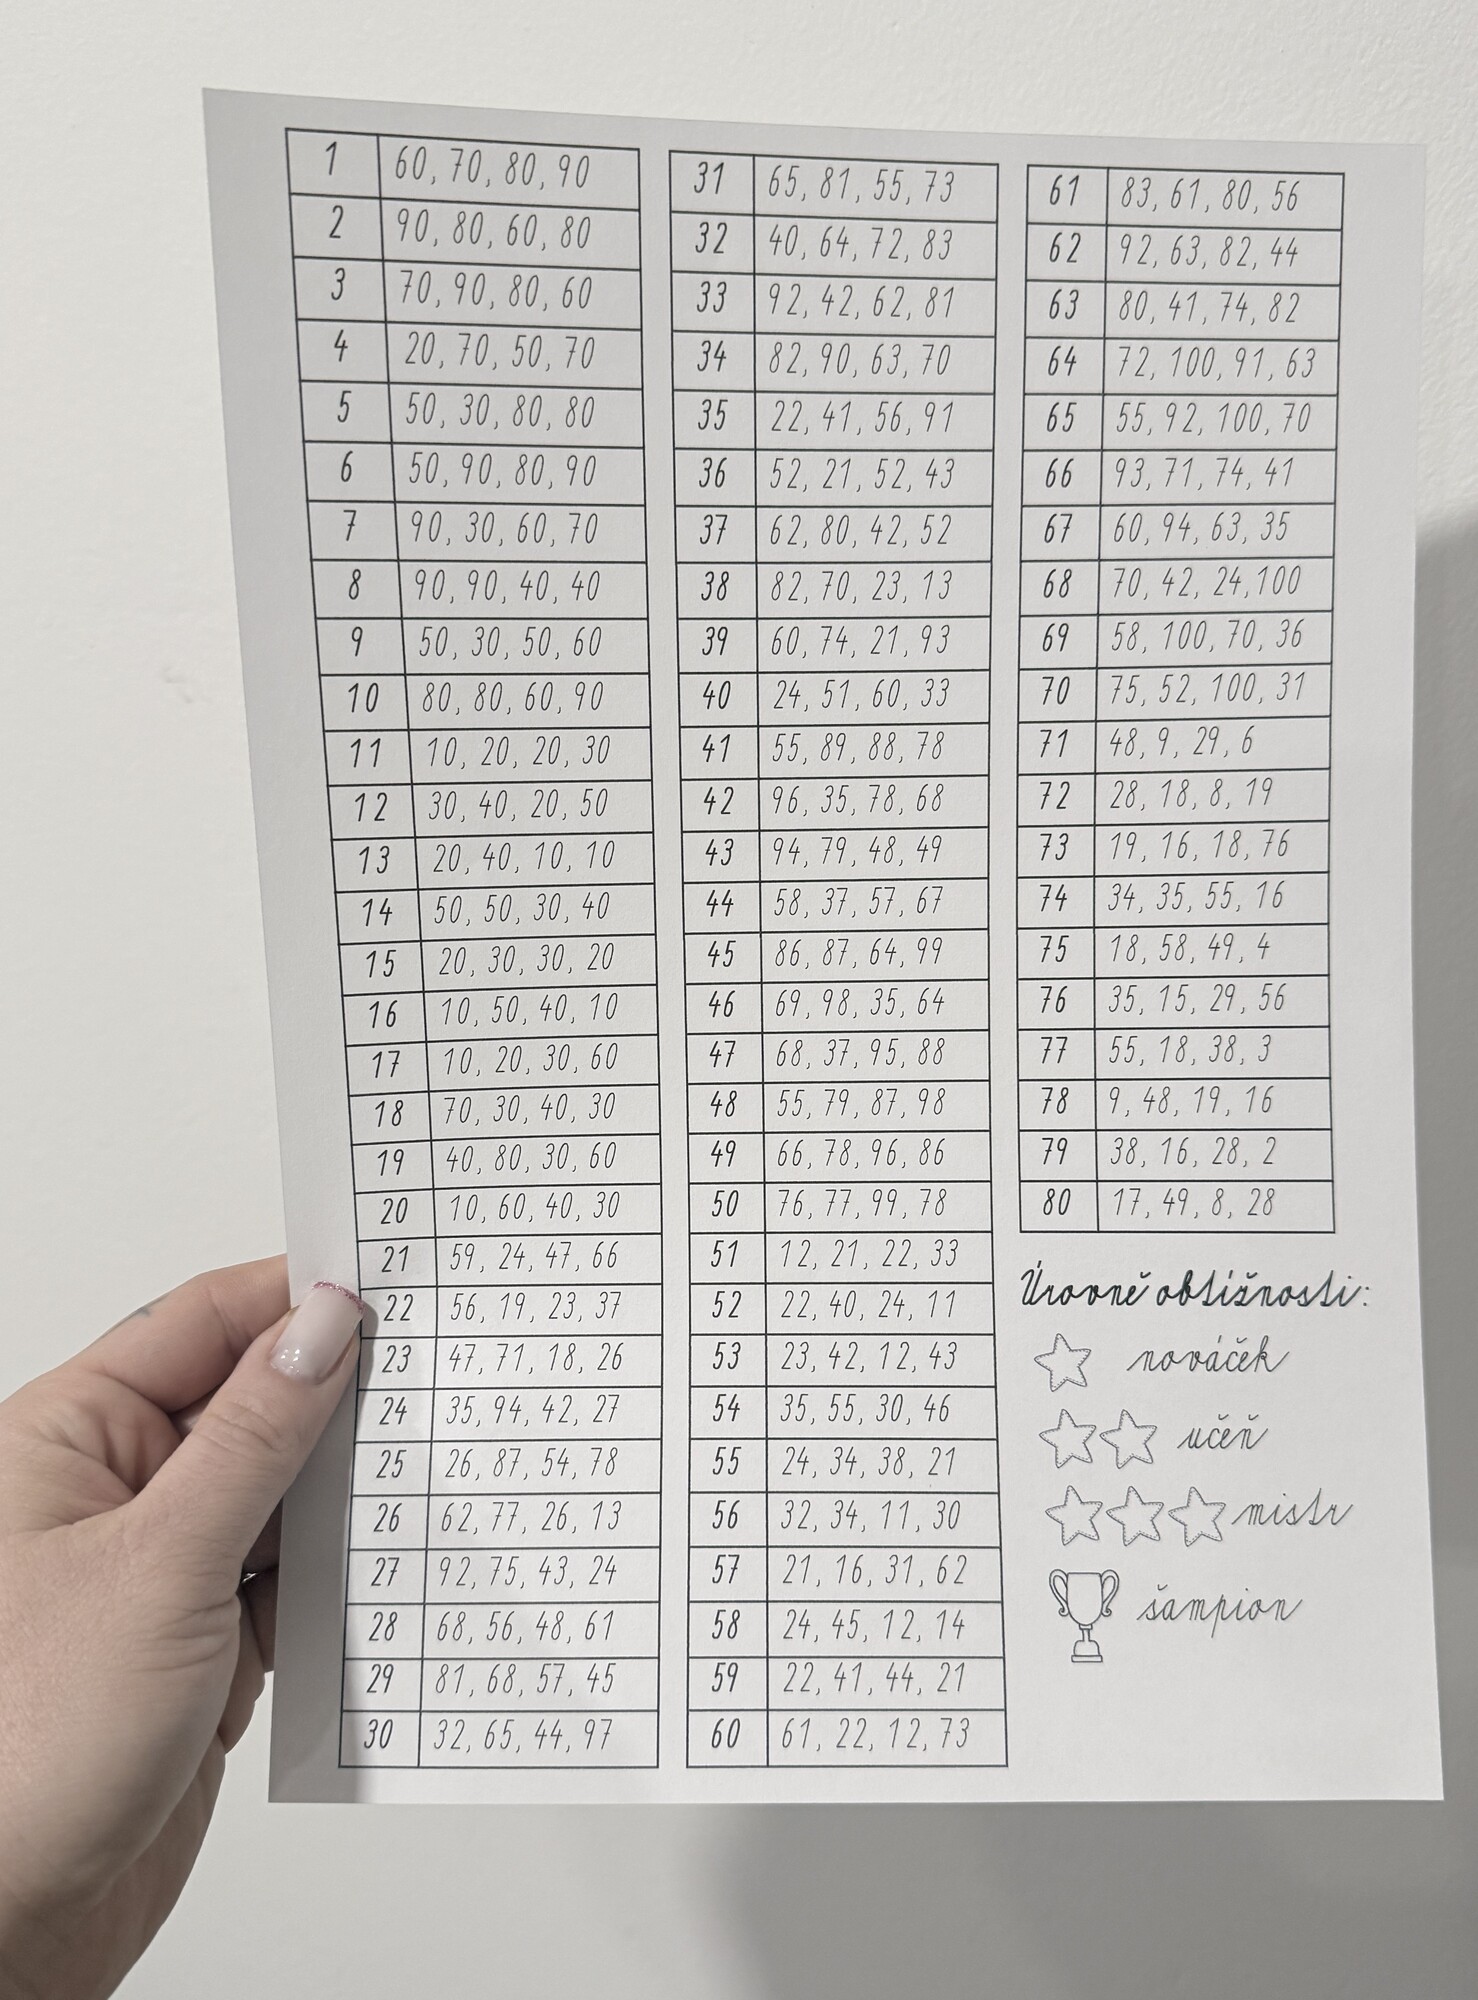 1 60, 70, 80, 90
2 90, 80, 60, 80
3 70, 90, 80, 60
4 20, 70, 50, 70
5 50, 30, 80, 80
6 50, 90, 80, 90
7 90, 30, 60, 70
8 90, 90, 40, 40
9 50, 30, 50, 60
10 80, 80, 60, 90
11 10, 20, 20, 30
12 30, 40, 20, 50
13 20, 40, 10, 10
14 50, 50, 30, 40
15 20, 30, 30, 20
16 10, 50, 40, 10
17 10, 20, 30, 60
18 70, 30, 40, 30
19 40, 80, 30, 60
20 10, 60, 40, 30
21 59, 24, 47, 66
22 56, 19, 23, 37
23 47, 71, 18, 26
24 35, 94, 42, 27
25 26, 87, 54, 78
26 62, 77, 26, 13
27 92, 75, 43, 24
28 68, 56, 48, 61
29 81, 68, 57, 45
30 32, 65, 44, 97
31 65, 81, 55, 73
32 40, 64, 72, 83
33 92, 42, 62, 81
34 82, 90, 63, 70
35 22, 41, 56, 91
36 52, 21, 52, 43
37 62, 80, 42, 52
38 82, 70, 23, 13
39 60, 74, 21, 93
40 24, 51, 60, 33
41 55, 89, 88, 78
42 96, 35, 78, 68
43 94, 79, 48, 49
44 58, 37, 57, 67
45 86, 87, 64, 99
46 69, 98, 35, 64
47 68, 37, 95, 88
48 55, 79, 87, 98
49 66, 78, 96, 86
50 76, 77, 99, 78
51 12, 21, 22, 33
52 22, 40, 24, 11
53 23, 42, 12, 43
54 35, 55, 30, 46
55 24, 34, 38, 21
56 32, 34, 11, 30
57 21, 16, 31, 62
58 24, 45, 12, 14
59 22, 41, 44, 21
60 61, 22, 12, 73
61 83, 61, 80, 56
62 92, 63, 82, 44
63 80, 41, 74, 82
64 72, 100, 91, 63
65 55, 92, 100, 70
66 93, 71, 74, 41
67 60, 94, 63, 35
68 70, 42, 24,100
69 58, 100, 70, 36
70 75, 52, 100, 31
71 48, 9, 29, 6
72 28, 18, 8, 19
73 19, 16, 18, 76
74 34, 35, 55, 16
75 18, 58, 49, 4
76 35, 15, 29, 56
77 55, 18, 38, 3
78 9, 48, 19, 16
79 38, 16, 28, 2
80 17, 49, 8, 28
Úrovně obtížnosti:
nováček
učeň
mistr
šampion